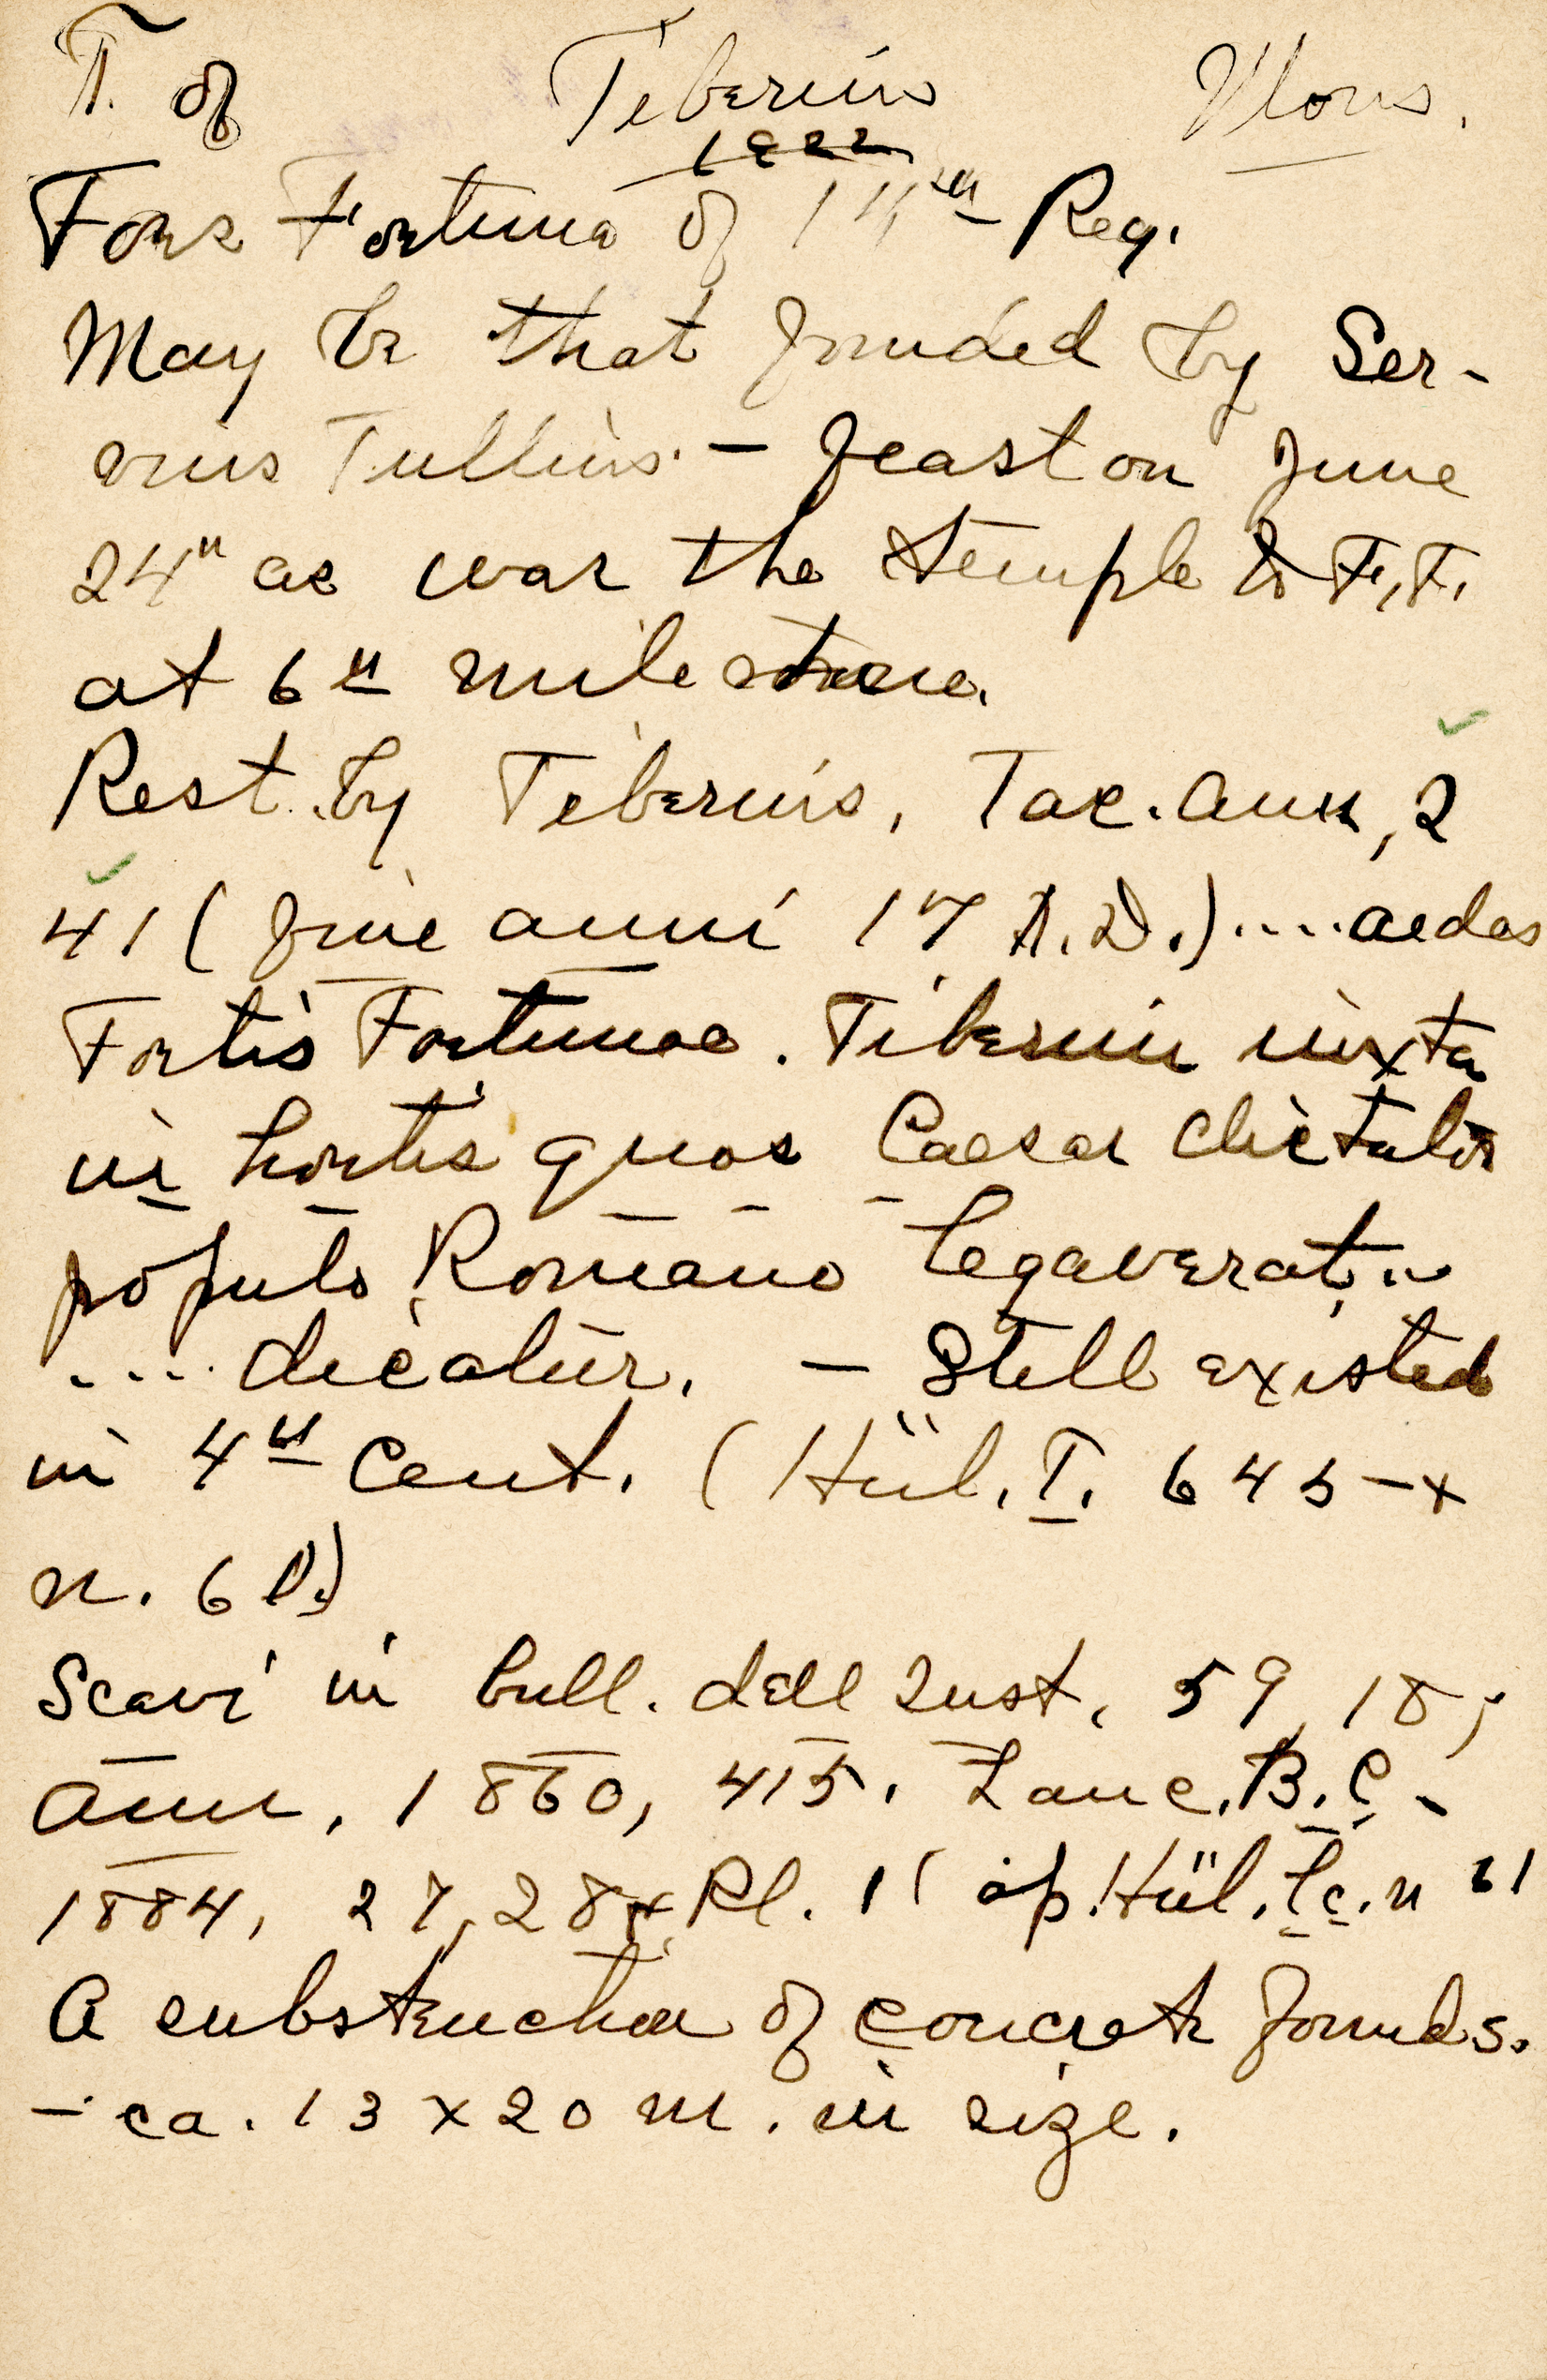 T. of Tiberius Mons.
1922
Fors Fortuna of 14th Reg.
May be that founded by Ser-
vius Tullius. – feast on June
24th as was the temple to F.F.
at 6th milestone.
Rest. by Tiberius, Tac. Ann, 2
41 (fine anni 17 A.D.) .... aedes
Fortis Fortunae. Tiberim iuxta
in hortis quos Caesar dictator
populo Romano legaverat ..
.... dicatur. – Still existed
in 4th Cent. (Hül. I. 645 – +
n. 61.)
Scavi in bull. dell Inst. 59, 18;
Ann, 1860, 415. Lanc. B.C.
1884, 27, 28 + Pl. 11 ap. Hül. l.c. n 61
A substruction of concrete founds.
– ca. 13 x 20 m. in size.